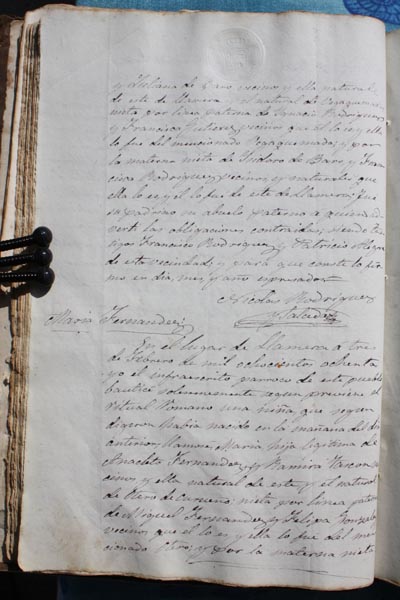 y Juliana de Baro vecinos y ella natural
de este de Llamera y el natural de Pozaquemada
nieta por linea paterna de Ignacio Rodriguez
y Francisca Gutierrez vecinos que el lo es y ella
lo fue del mencionado Pozaquemada; y por
la materna nieta de Isidoro de Baro y Fran
cisca Rodriguez vecinos y naturales que
ella lo es y el lo fue de este de Llamera: fue
su padrino su abuelo paterno a quien ad
verti las obligaciones contraidas, siendo tes
tigos Francisco Rodriguez y Patricio
de esta vecindad; y para que conste lo fir
mo en dia, mes y año expresados
Nicolas Rodriguez
Salcedo
Maria Fernandez
En el lugar de Llamera a tres
de Febrero de mil ochocientos ochenta
yo el infrascrito parroco de este pueblo
bautice solemnemente segun previene el
ritual Romano una niña que segun
digeron habia nacido en la mañana del dia
anterior llamose Maria hija legitima de
Anacleto Fernandez y Ramira ve
cinos y ella natural de este y el natural
de Otero de Curueño; nieta por linea paterna
de Miguel Fernandez y Felipa Gonzalez
vecinos que el lo es y ella lo fue del men
cionado Otero; y por la materna nieta